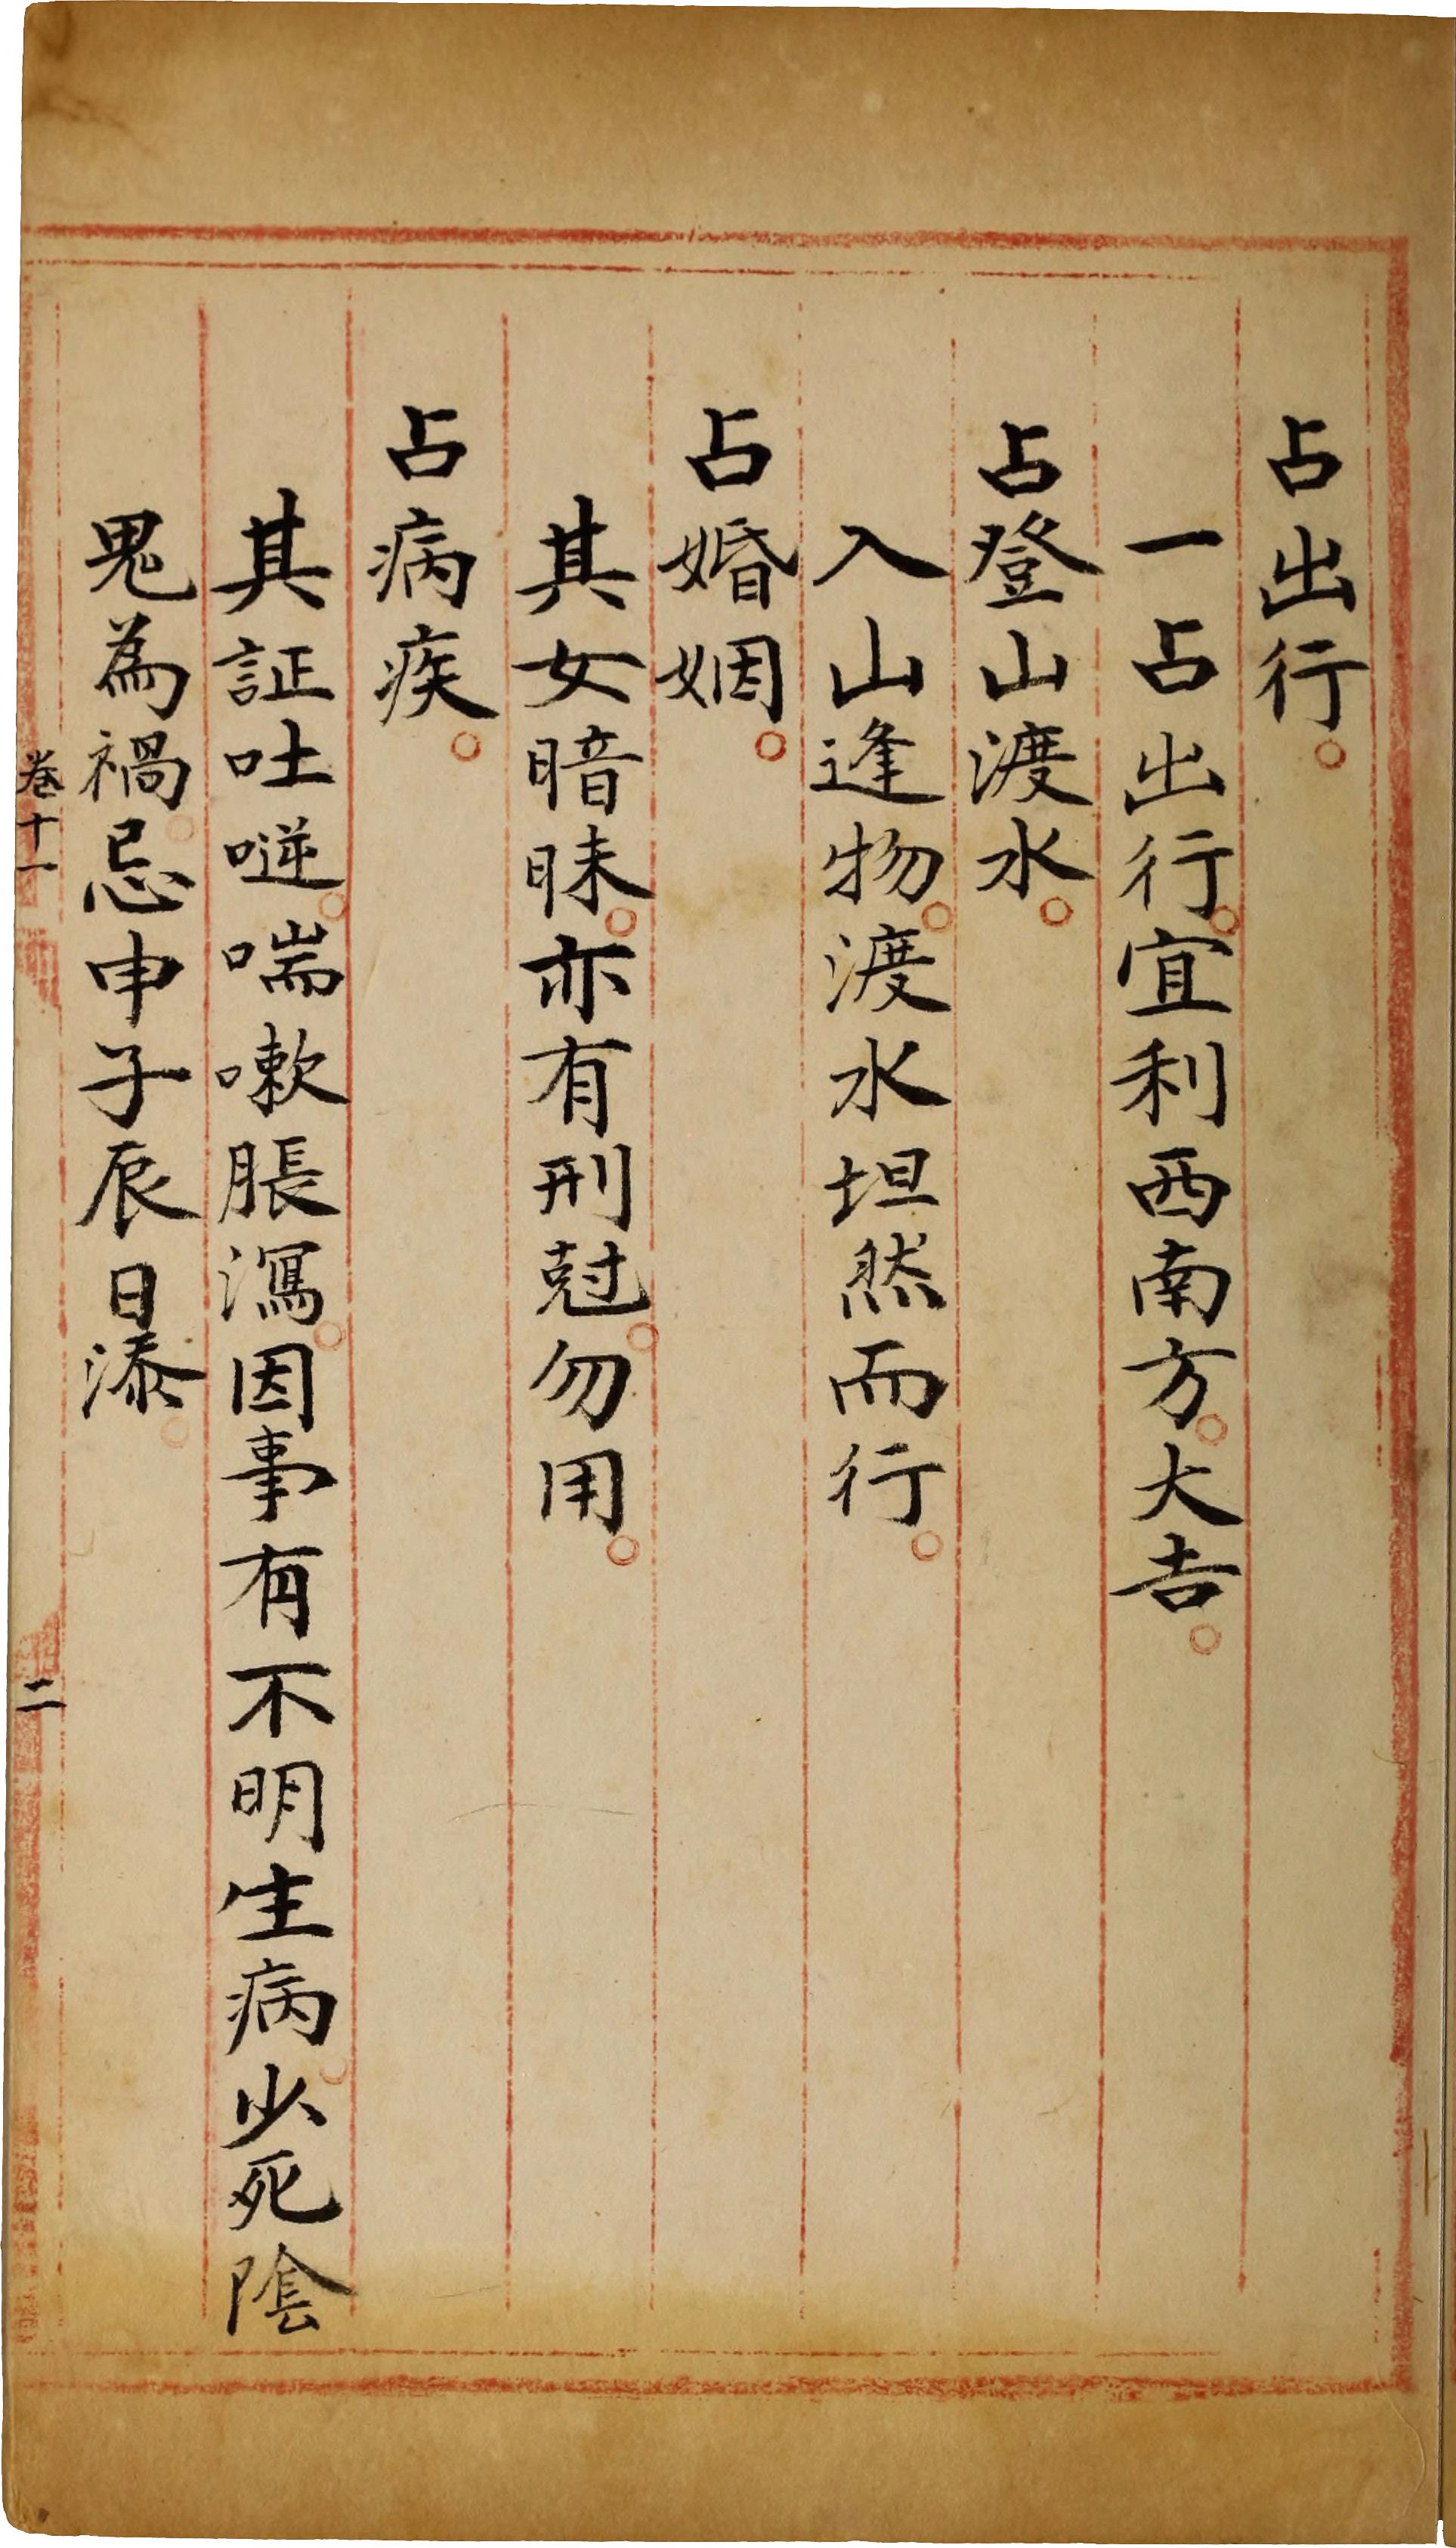 占出行。
一占出行。宜利西南方。大吉。
占登山渡水。
入山逢物。渡水坦然而行。
占婚姻。
其女暗昧。亦有刑尅。勿用。
占病疾。
其証吐噬。喘嗽脹瀉。因事有不明生病。少死陰
鬼為禍。忌申子辰日
卷十一
二